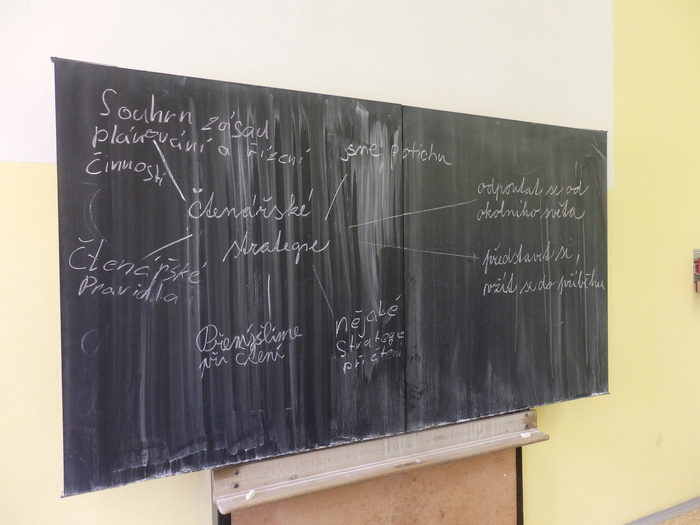 Souhrn zásad
plánování a řízení
činností
jsme potichu
Čtenářské
strategie
odpoutat se od
okolního světa
představit se,
vžít se do příběhu
Čtenářské
Pravidla
Přemýšlíme
při čtení
nějaké
strategie
při čtení